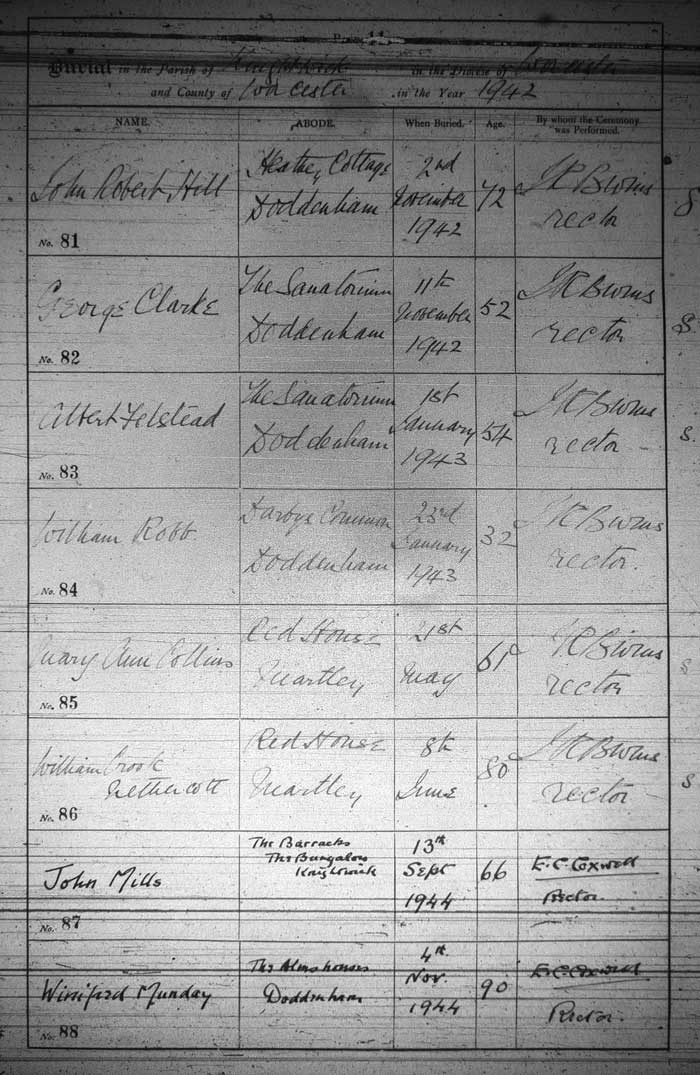 Page 11
Burial in the Parish of Knightwick in the Diocese of Worcester
and County of Worcester in the Year 1942
NAME. ABODE. When Buried. Age. By whom the Ceremony was Performed.
John Robert Hill
No. 81
Heathey Cottage
Doddenham
2nd
November
1942
72
rector
S
George Clarke
No. 82
The Sanatorium
Doddenham
11th
November
1942
52
rector
S.
Albert Felstead
No. 83
The Sanatorium
Doddenham
1st
January
1943
54
rector
S.
William Robb
No. 84
Darbys Common
Doddenham
23rd
January
1943
32
rector.
Mary Ann Collins
No. 85
Red House
Martley
21st
May
61
rector
S
William Crook
Nethercott
No. 86
Red House
Martley
8th
June
80
rector
S
John Mills
No. 87
The Barracks
The Bungalow
Knightwick
13th
Sept
1944
66
E.C. Coxwell
Rector.
Winifred Munday
No. 88
The Almshouses
Doddenham
4th
Nov.
1944
90
E.C. Coxwell
Rector.